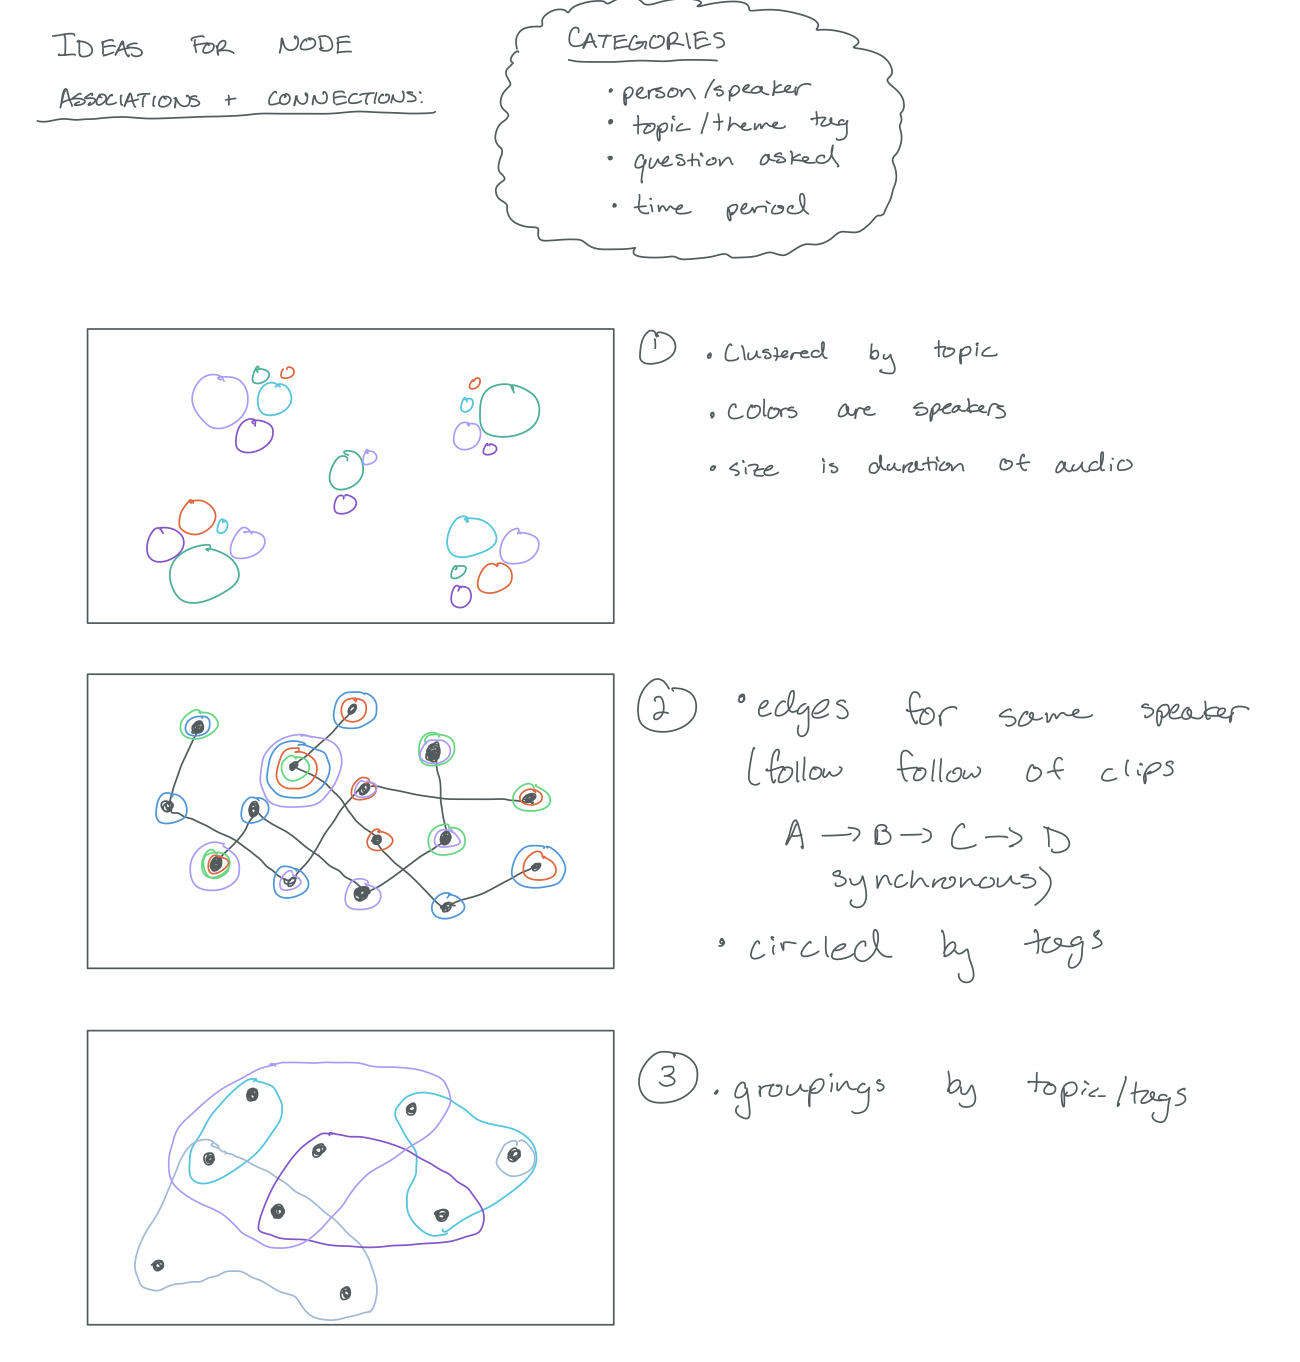 IDEAS FOR NODE
ASSOCIATIONS + CONNECTIONS:
CATEGORIES
• person/speaker
• topic/theme tag
• question asked
• time period
1 • Clustered by topic
• colors are speakers
• size is duration of audio
2 • edges for same speaker
(follow follow of clips
A → B → C → D
synchronous)
• circled by tags
3 • groupings by topic/tags